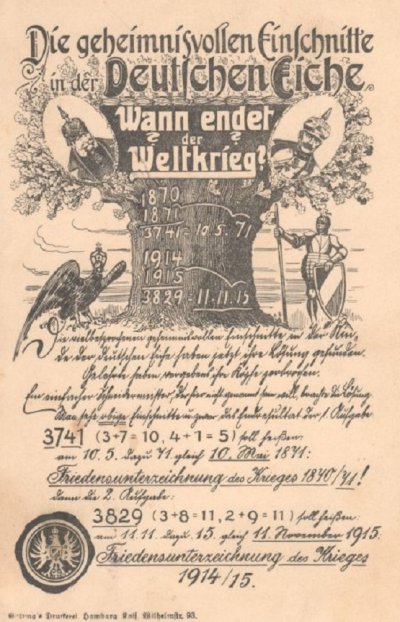 Die geheimnisvollen Einschnitte
in der Deutschen Eiche.
Wann endet
der
Weltkrieg?
1870
1871
3741 = 10.5.71
1914
1915
3829 = 11.11.15
Die vielbesprochenen geheimnisvollen Einschnitte in der Rin-
de der deutschen Eiche haben jetzt ihre Lösung gefunden.
Gelehrte haben vergebens ihre Köpfe zerbrochen.
Ein einfacher Schneidermeister, der hier nicht genannt sein will, brachte die Lösung.
Man sehe obige Einschnitte u. zwar das Endresultat der 1. Aufgabe
3741 (3+7=10, 4+1=5) soll heißen:
am 10.5. dazu 71 gleich 10. Mai 1871:
Friedensunterzeichnung des Krieges 1870/71!
dann die 2. Aufgabe:
3829 (3+8=11, 2+9=11) soll heißen:
am 11.11. dazu 15. gleich 11. November 1915:
Friedensunterzeichnung des Krieges
1914/15.
Druckerei, Hamburg Kais. Wilhelmstr. 93.